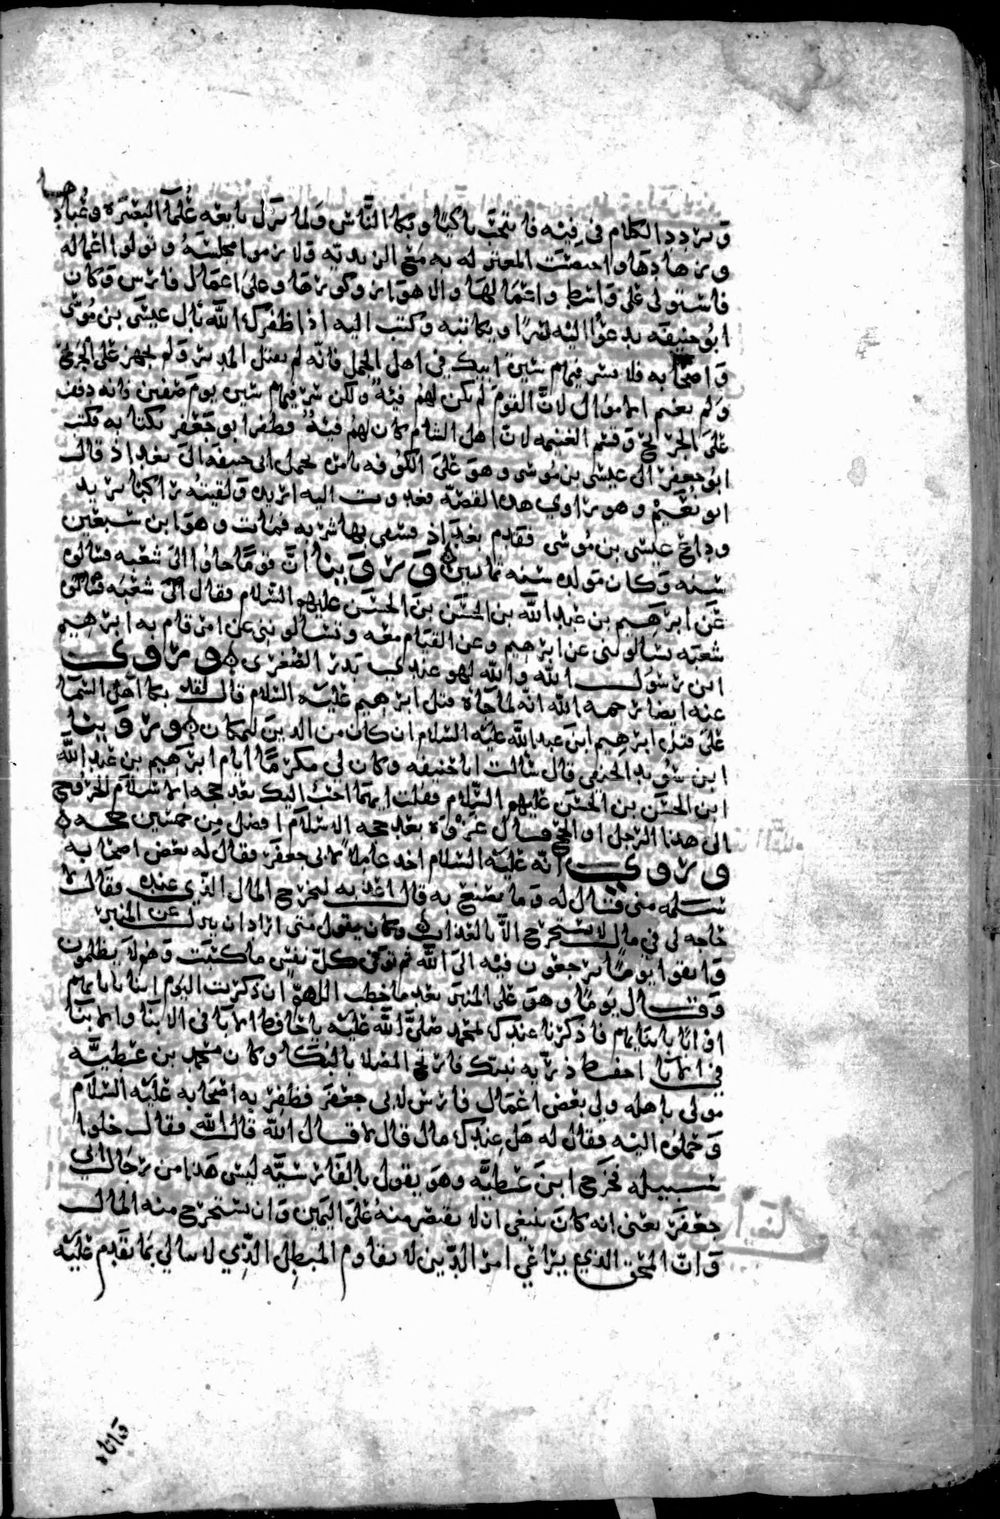 وتردد الكلام في فيه فانتحب باكيا وبكا الناس ولما نزل بايعه علما البصره وعبادها
وزهادها واختصت المعتزله به مع الزيديه ولازموا مجلسه وتولوا اعماله
فاستولى على واسط واعمالها والاهواز وكورها وعلى اعمال فارس وكان
ابو حنيفه يدعوا اليه سرا ويكاتبه وكتب اليه اذا اظفرك الله بال عيسى بن موسى
واصحابه فلا تسر فيهم سيرة ابيك في اهل الجمل فانه لم يقتل المدبر ولم يجهز على الجريح
ولم يغنم الاموال لان القوم لم يكن لهم فئة ولكن سر فيهم سيره يوم صفين فانه دفف
على الجريح وقسم الغنيمه لان اهل الشام كان لهم فئة فظفر ابو جعفر بكتابه فكتب
ابو جعفر الى عيسى بن موسى وهو على الكوفه يامره بحمل ابي حنيفه الى بغداذ قال
ابو نعيم وهو راوي هذه القصه فغدوت اليه اريده ولقيته راكبا يريد
وداع عيسى بن موسى فقدم بغداذ فسقي بها شربه فمات وهو ابن سبعين
سنه وكان مولده سنه ثمانين وروينا ان قوما جاوا الى شعبه فسالوه
عن ابرهيم بن عبدالله بن الحسن بن الحسن عليهم السلام فقال شعبه
شعبه تسالوني عن ابرهيم وعن القيام معه وتسالونني عن امر قام به ابرهيم
ابن رسول الله والله لهو عندي بدر الصغرى وروي
عنه ايضا رحمه الله انه لما جاه قتل ابرهيم عليه السلام قال لقد بكا اهل السما
على قتل ابرهيم ابن عبدالله عليه السلام ان كان من الدين لبمكان وروينا
ابن سويد الحنفي قال سالت ابا حنيفه وكان لي مكرما ايام ابرهيم بن عبدالله
ابن الحسن بن الحسن عليهم السلام فقلت ايهما احب اليك بعد حجه الاسلام الخروج
الى هذا الرجل او الحج فقال غزوة بعد حجه الاسلام افضل من خمسين حجه
وروي انه عليه السلام اخذ عاملا لابي جعفر فقال له بعض اصحابه
سلمه مني فقال له وما تصنع به قال اعذبه ليخرج المال الذي عنده فقال لا
حاجه لي في مال لا يستخرج الا بالعذاب وكان يقول متى اراد ان ينزل عن المنبر
واتقوا يوما ترجعون فيه الى الله ثم توفى كل نفس ما كسبت وهم لا يظلمون
وقال يوما وهو على المنبر بعد ما خطب اللهم ان ذكرت اليوم ابنا بابايهم
او ابا بابنايهم فاذكرنا عندك بمحمد صلى الله عليه يا حافظ الابا في الابنا والابنا
في الابا احفظ ذريه نبيك فارتج المصلا بالبكا وكان محمد بن عطيه
مولى باهله ولي بعض اعمال فارس لابي جعفر فظفر به اصحابه عليه السلام
وحملوه اليه فقال له هل عندك مال قال لا قال الله قال الله فقال خلوا
سبيله فخرج ابن عطيه وهو يقول بالفارسيه ليس هذا من رجال ابي
جعفر يعني انه كان ينبغي ان لا يقتصر منه على اليمين وان يستخرج منه المال
وان المحق الذي يراعي امر الدين لا يقاوم المبطل الذي لا يبالي بما تقدم عليه
واتاه